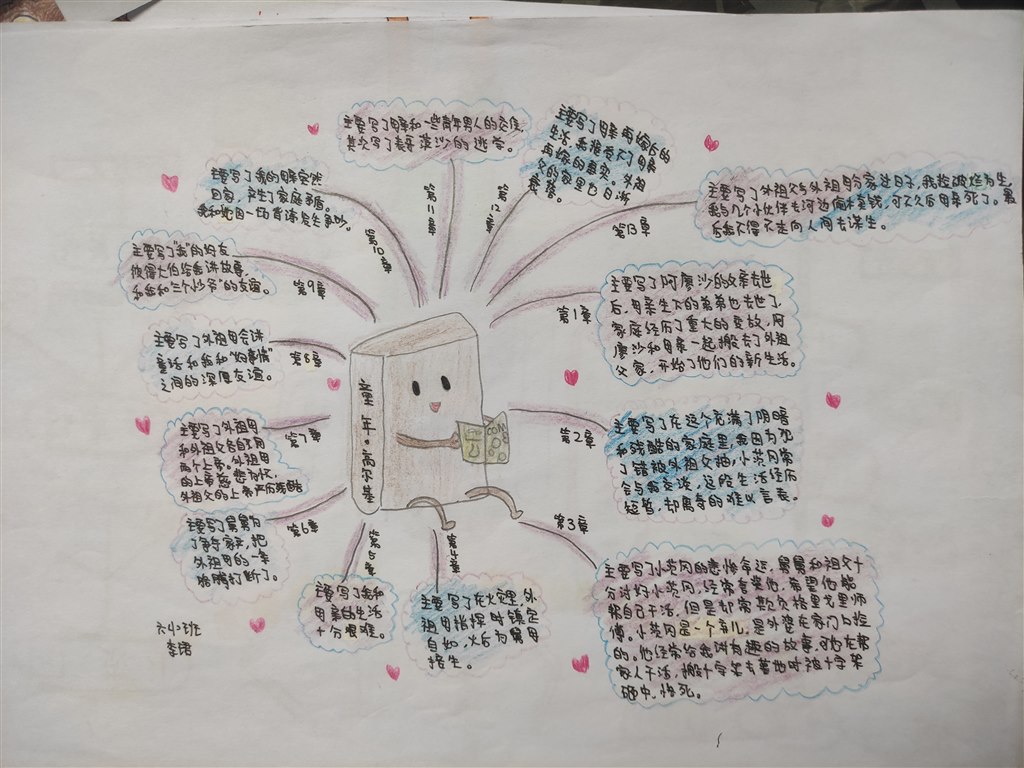 童年。高尔基
第1章
主要写了阿廖沙的父亲去世
后,母亲生下的弟弟也去世了,
家庭经历了重大的变故,阿
廖沙和母亲一起搬去了外祖
父家,开始了他们的新生活。
第2章
主要写了在这个充满了阴暗
和残酷的家庭里,我因为犯
了错被外祖父抽,小茨冈常
会与我交谈,这段生活经历
短暂,却离奇的难以言表。
第3章
主要写了小茨冈的悲惨命运,舅舅和祖父十
分讨好小茨冈,经常夸奖他,希望他能
帮自己干活,但是却常欺负格里戈里师
傅。小茨冈是一个弃儿,是外婆在家门口捡
的。他经常给我讲有趣的故事,可他在帮
家人干活,搬十字架去墓地时被十字架
砸中,惨死。
第4章
主要写了在火灾里,外
祖母指挥时镇定
自如,火后为舅母
接生。
第5章
主要写了我和
母亲的生活
十分艰难。
第6章
主要写了舅舅为
了争夺家产,把
外祖母的一条
胳膊打断了。
第7章
主要写了外祖母
和外祖父各自了用
两个上帝。外祖母
的上帝慈悲
外祖父的上帝严厉残酷
第8章
主要写了外祖母会讲
童话和我和“好事情”
之间的深厚友谊。
第9章
主要写了“我”的好友
彼得大伯给我讲故事
和我和“三个小少爷”的友谊。
第10章
主要写了我的母亲突然
回家,产生了家庭矛盾。
我和她因一场背诗发生争吵。
第11章
主要写了母亲和一些青年男人的交往,
其次写了表哥萨沙的逃学。
第12章
主要写了母亲再嫁后的
生活,我难受大了母亲
再嫁的事实。外祖
父的家里也日渐
衰落。
第13章
主要写了外祖父与外祖母分家过日子,我捡破烂为生,
我与几个小伙伴去河边偷木卖钱,可不久后母亲死了。最
后我不得不走向人间去谋生。
六小班
李诺